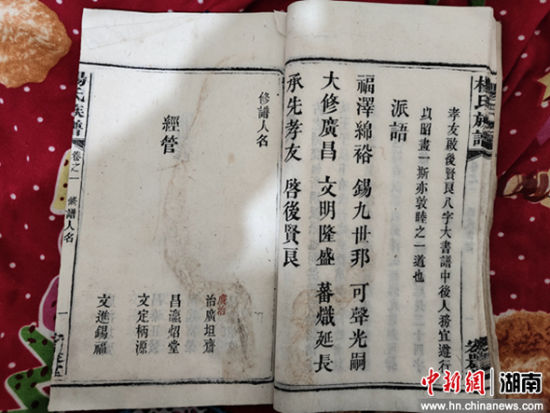 楊氏族譜
孝友啟後賢良八字大書譜中後人務宜遵行
以昭畫一斯亦敦睦之一道也
派語
福澤綿裕 錫九世耶 可聲光嗣
大修廣昌 文明隆盛 蕃熾延長
承先孝友 啓後賢良
修譜人名
經管
廣治
治廣坦齋
昌瀛炤堂
文定柄源
文進錫福
楊氏族譜
卷之一
纂譜人名
一
中新網 湖南
www.hn.chinanews.com